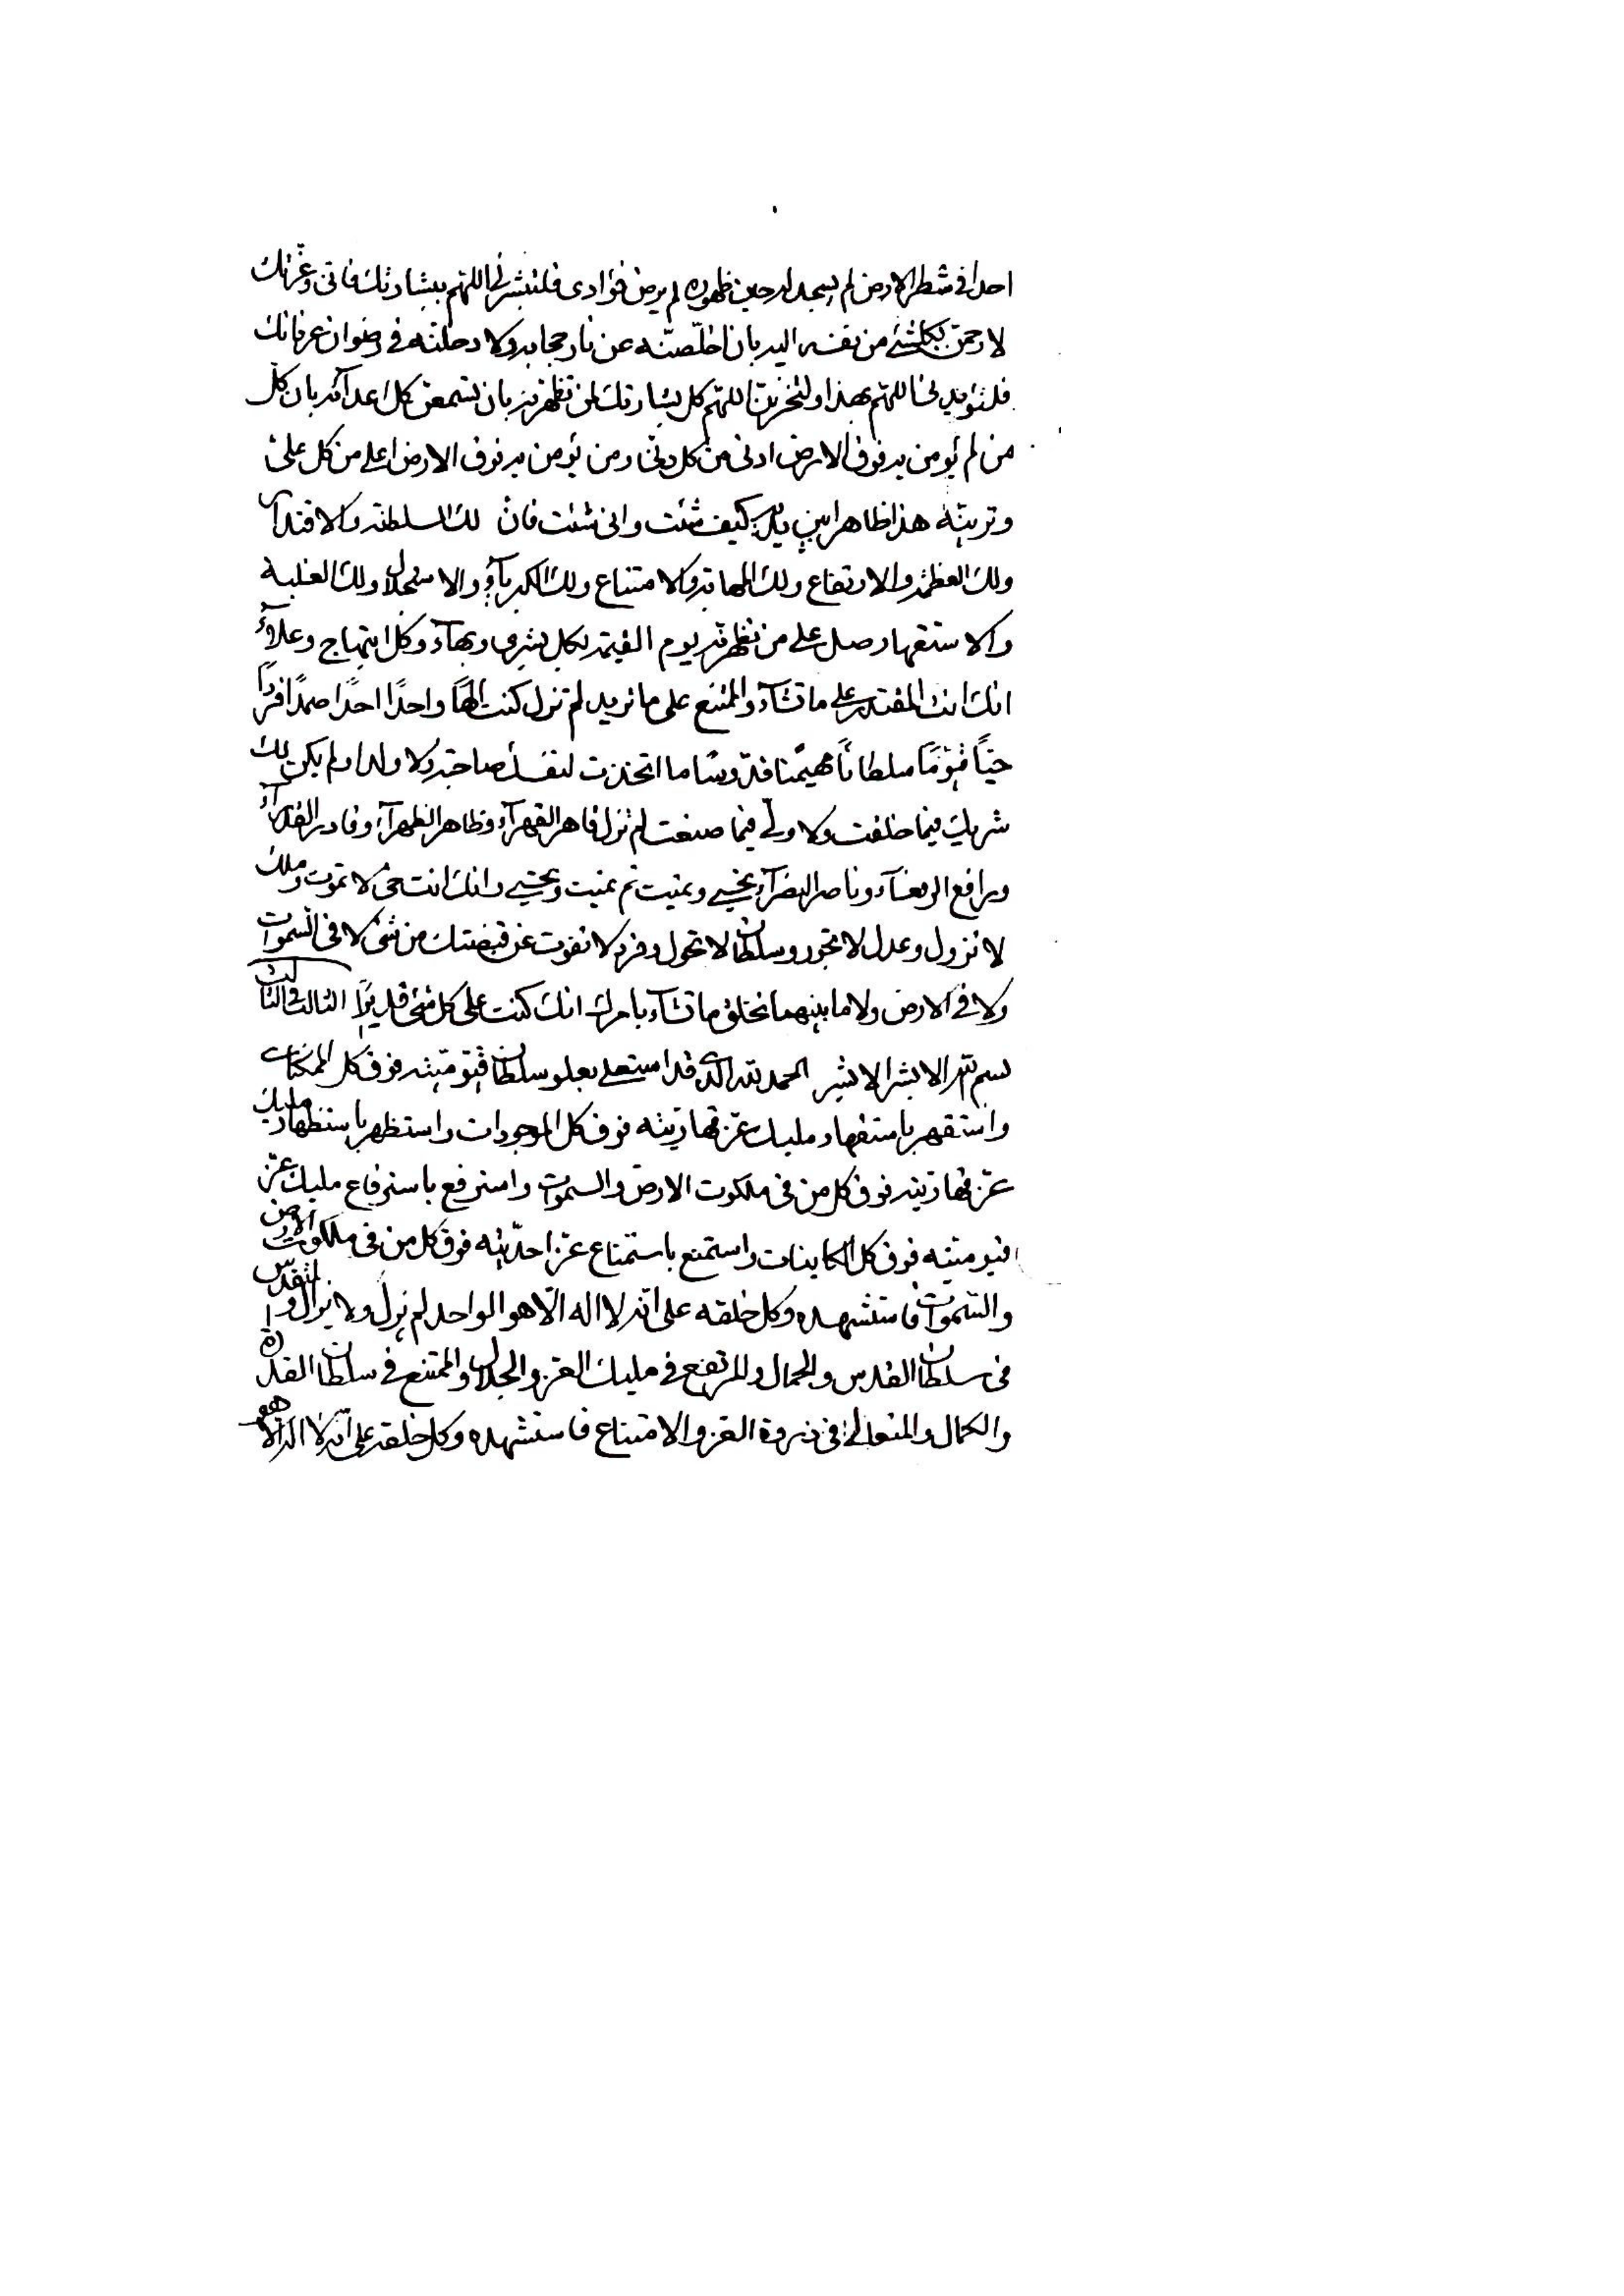 احدا فی شطر الارض لم یسجد له حین ظهوره لم یرض فؤادی فلتبشرنی اللهم ببشارتک فانی وعزتک
لارحمن بکلشیء من نفسه الیه بان اخلصنه عن نار حجابه ولادخلنه فی رضوان عرفانک
فلتؤیدنی اللهم بهذا ولتخزنن اللهم کل بشارتک لمن تظهرنه بان تسمعن کل اعدائه بان کل
من لم یؤمن به فوق الارض ادنی من کل دنی ومن یؤمن به فوق الارض اعلی من کل علی
وترینه هذا ظاهرا بین یدیه کیف شئت وانی شئت فان لک السلطنة والاقتدار
ولک العظمة والارتفاع ولک المهابة والامتناع ولک الکبریآء والاستجلال ولک الغلبة
والاستقهار وصل علی من تظهرنه یوم القیمة بکل بشری وبهآء وکل ابتهاج وعلاء
انک انت المقتدر علی ما تشآء والممتنع علی ما ترید لم تزل کنت الهًا واحدًا احدًا صمدًا فردًا
حیًا قیّومًا سلطانًا مهیمنا قدوسًا ما اتخذت لنفسک صاحبة ولا ولدا ولم یکن لک
شریک فیما خلقت ولا ولیّ فیما صنعت لم تزل قاهر القهرآء وظاهر الظهرآء وقادر القدرآء
ورافع الرفعآء وناصر النصرآء تحیی وتمیت ثم تمیت وتحیی وانک انت حی لا تموت وملک
لا تزول وعدل لا تجور وسلطان لا تحول وفرد لا تفوت عن قبضتک من شیء لا فی السموات
ولا فی الارض ولا ما بینهما تخلق ما تشآء بامرک انک کنت علی کل شیء قدیرًا الثالث فی الثالث
بسم الله الابشر الابشر الحمد لله الذی قد استعلی بعلو سلطان قیّومیّته فوق کل الممکنات
واستقهر باستقهار ملیک عز قهاریّته فوق کل الموجودات واستظهر باستظهار ملیک
عز قهاریته فوق کل من فی ملکوت الارض والسموات واسترفع باسترفاع ملیک عز
قیومیته فوق کل الکاینات واستمنع باستمناع عز احدیّته فوق کل من فی ملکوت الارض
والسموات فاستشهده وکل خلقه علی انه لا اله الّا هو الواحد لم یزل ولا یزال والمتقدس
فی سلطان القدس والجمال والمرتفع فی ملیک العز والجلال والممتنع فی سلطان القدرة
والکمال والمتعالی فی ذروة العز والامتناع فاستشهده وکل خلقه علی انه لا اله الا هو